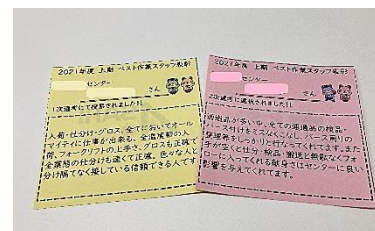 2021年度 上期 ベスト作業スタッフ表彰
センター
さん
1次選考にて投票されました!!
入荷・仕分け・グロス、全てにおいてオール
マイティに仕事が出来る。全温度帯の入
荷、フォークリフトの上手さ、グロスも正確で
全業態の仕分けも速くて正確。色々な人と
分け隔てなく接している信頼できる人です
2021年度 上期 ベスト作業スタッフ表彰
センター
さん
2次選考に選抜されました!!
物量が多い中、全ての発注商の検品・
バース付けをミスなくこなし、バース周りの
整理等をしっかりと行なってます。また
手が空くと仕分・検品・搬送と無駄なくフォ
ローに入ってくれる献身さはセンターに良い
影響を与えてくれてます。